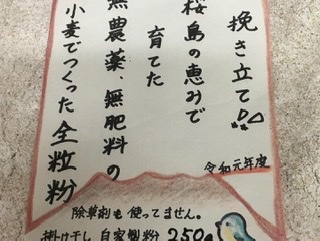 挽き立て
桜島の恵みで
育てた
無農薬、無肥料の
小麦でつくった全粒粉
令和元年度
除草剤も使ってません。
掛け干し 自家製粉 250g